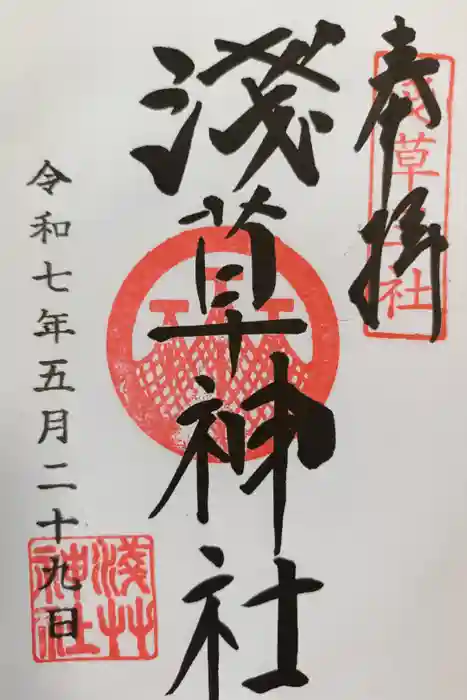 奉拝
浅草三社
淺草神社
令和七年五月二十九日
淺艸
神社